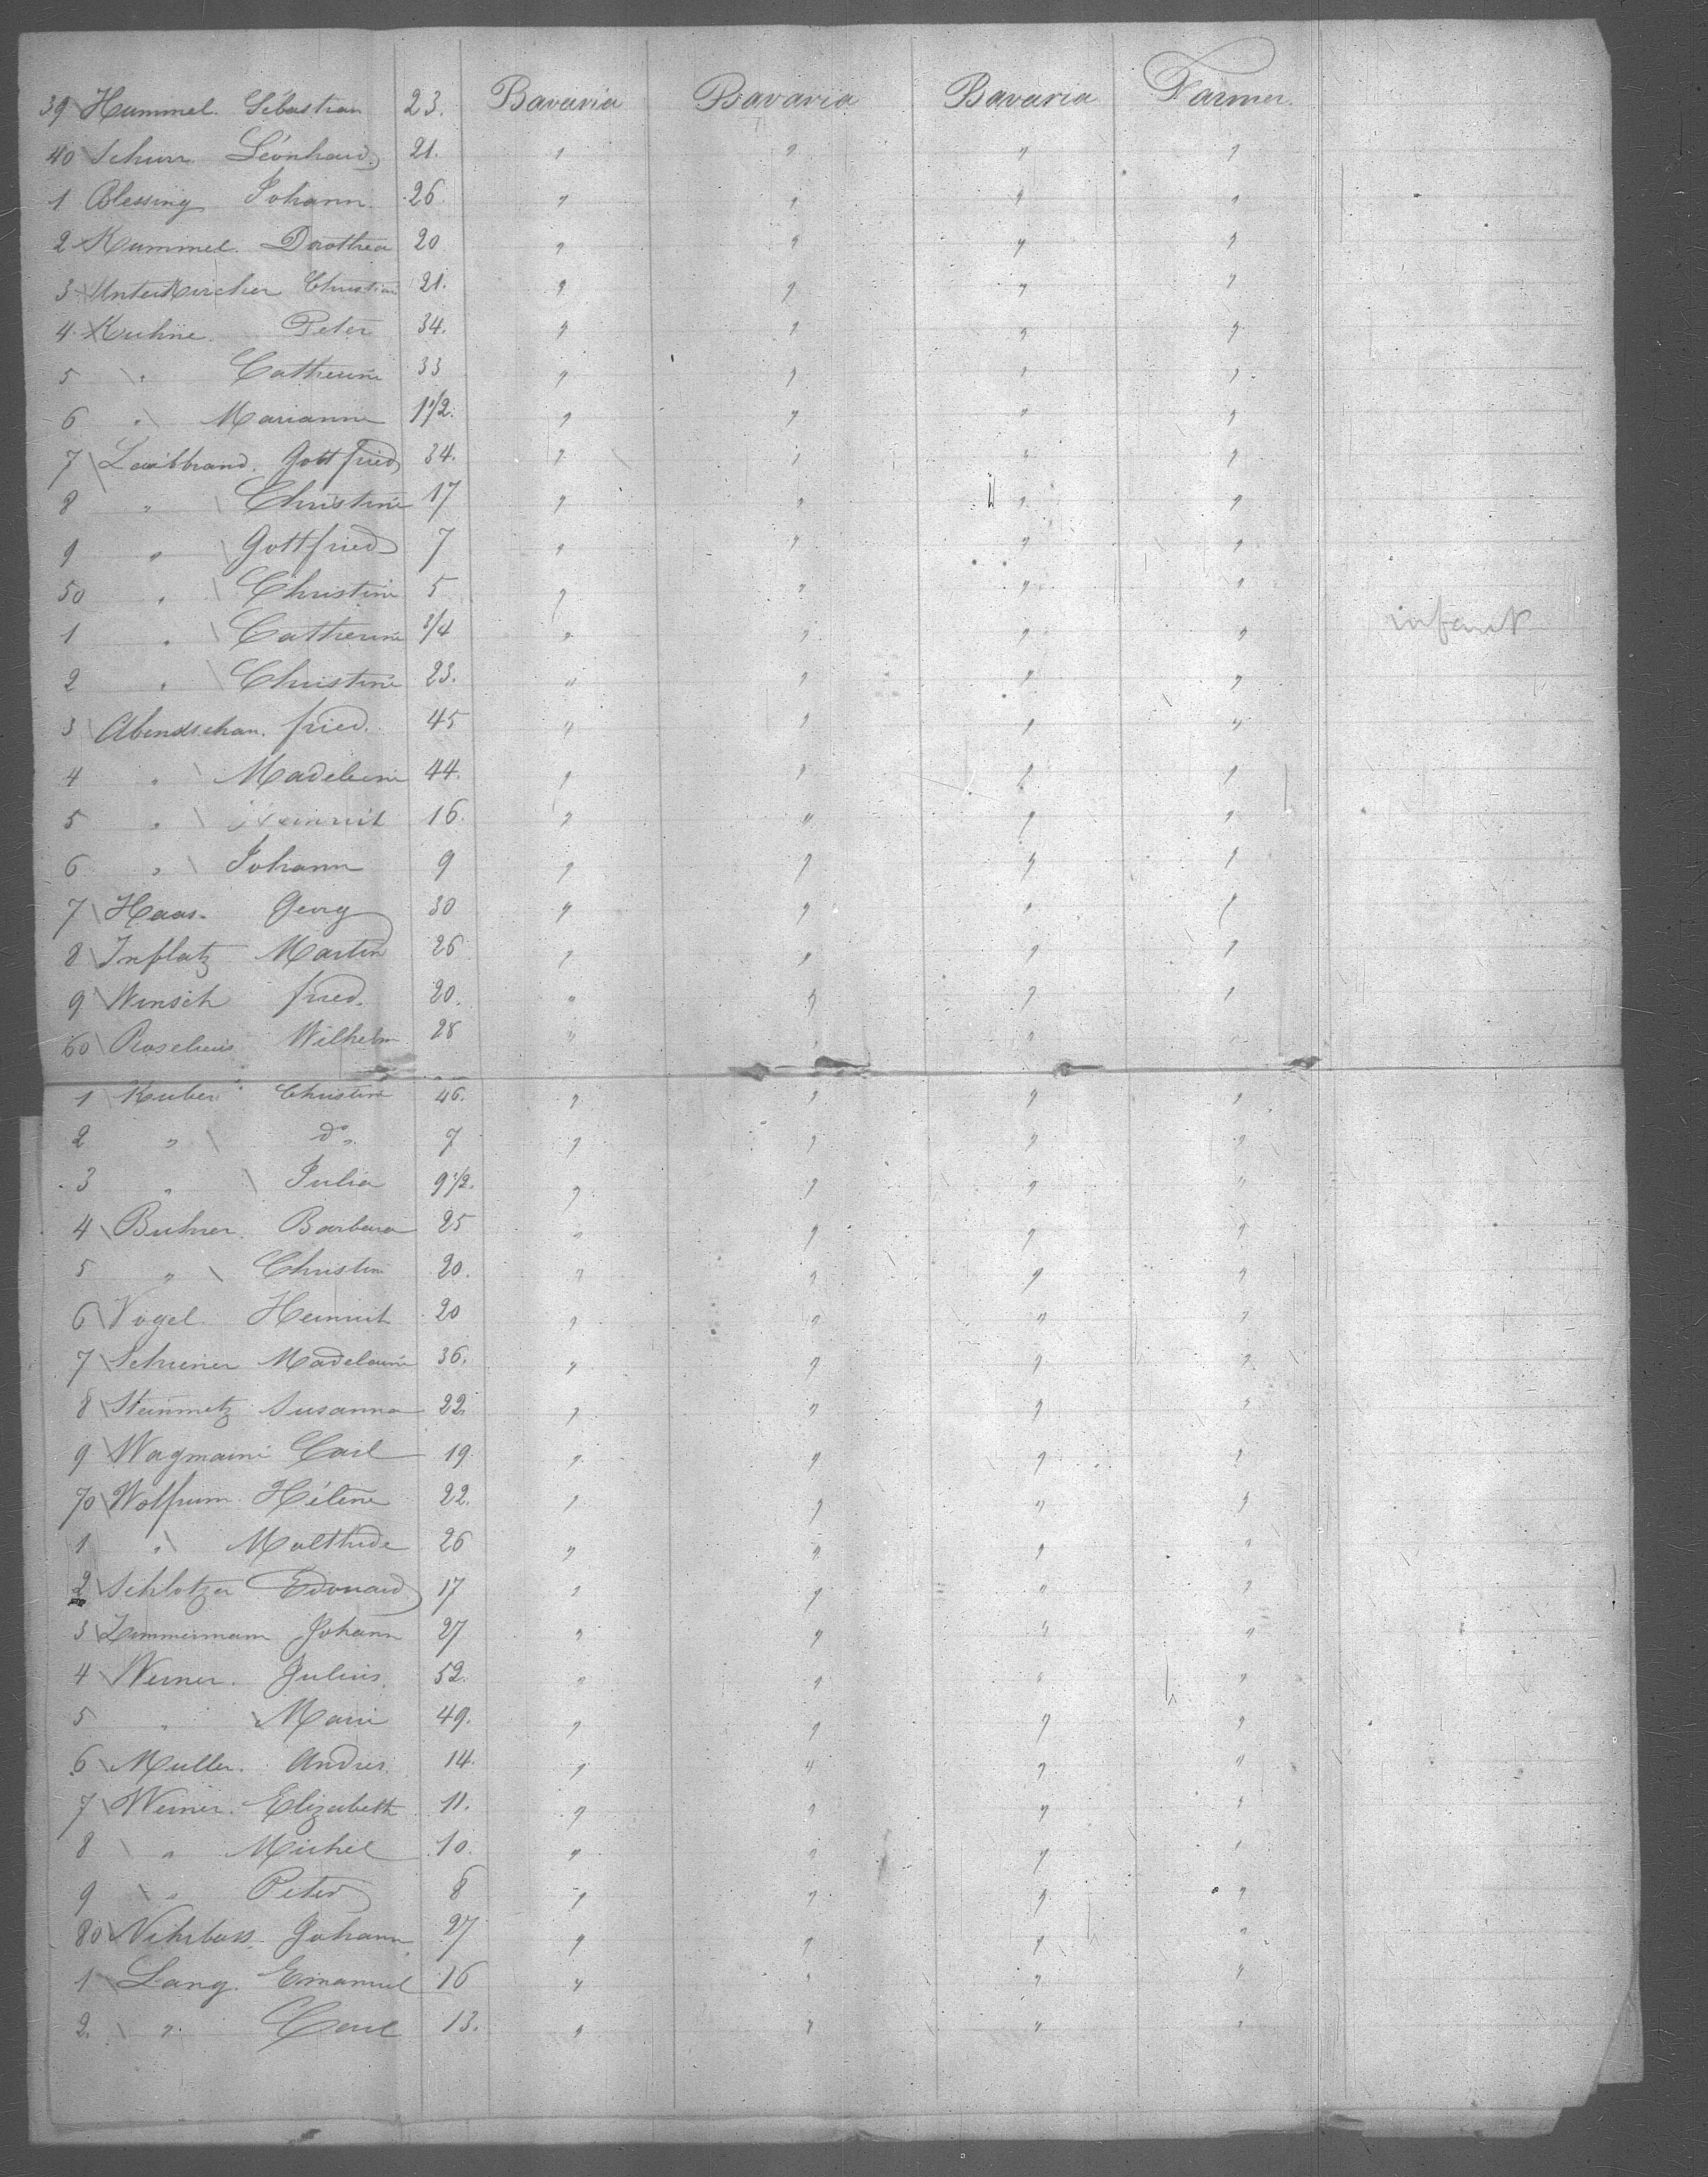 39 Hummel. Sébastian 23. Bavaria Bavaria Bavaria Farmer.
40 Schurr Léonhard 21. " " " "
1 Blessing Johann. 26. " " " "
2 Kummel. Dorothea 20 " " " "
3 Unterkircher Christian 21. " " " "
4 Kuhne. Peter 34. " " " "
5 " Catherine 33 " " " "
6 " Marianne 1 1/2. " " " "
7 Laubbrand. Gottfried 34. " " " "
8 " Christine 17 " " " "
9 " Gottfried 7 " " " "
50 " Christine 5 " " " "
1 " Catherine 3/4 " " " " infant
2 " Christine 23. " " " "
3 Abendschan. fried. 45 " " " "
4 " Madeleine 44. " " " "
5 " Heinrich 16. " " " "
6 " Johann 9 " " " "
7 Haas. Georg 30 " " " "
8 Inflatz Martin 26 " " " "
9 Winsch fried. 20. " " " "
60 Roselius Wilhelm 28 " " "
1 Kuber Christine 46. " " " "
2 " do. 7 " " " "
3 " Julia 9 1/2. " " " "
4 Buhrer. Barbara 25 " " " "
5 " Christin 20. " " " "
6 Vogel. Heinrich 20 " " " "
7 Schriner Madelaine 36. " " " "
8 Steinmetz Susanna 22 " " " "
9 Wagmaine Carl 19. " " " "
70 Wolfrum. Hélène 22. " " " "
1 " Malthide 26 " " " "
2 Schlotzer Edouard 17 " " " "
3 Zimmermann Johann 27 " " " "
4 Werner. Julius. 52. " " " "
5 " Marie 49. " " " "
6 Muller. Andres. 14. " " " "
7 Werner. Elizabeth 11. " " " "
8 " Michel 10. " " " "
9 " Peter 8 " " " "
80 Johann 27 " " " "
1 Lang. Emanuel 16 " " " "
2. " Carl 13. " " " "